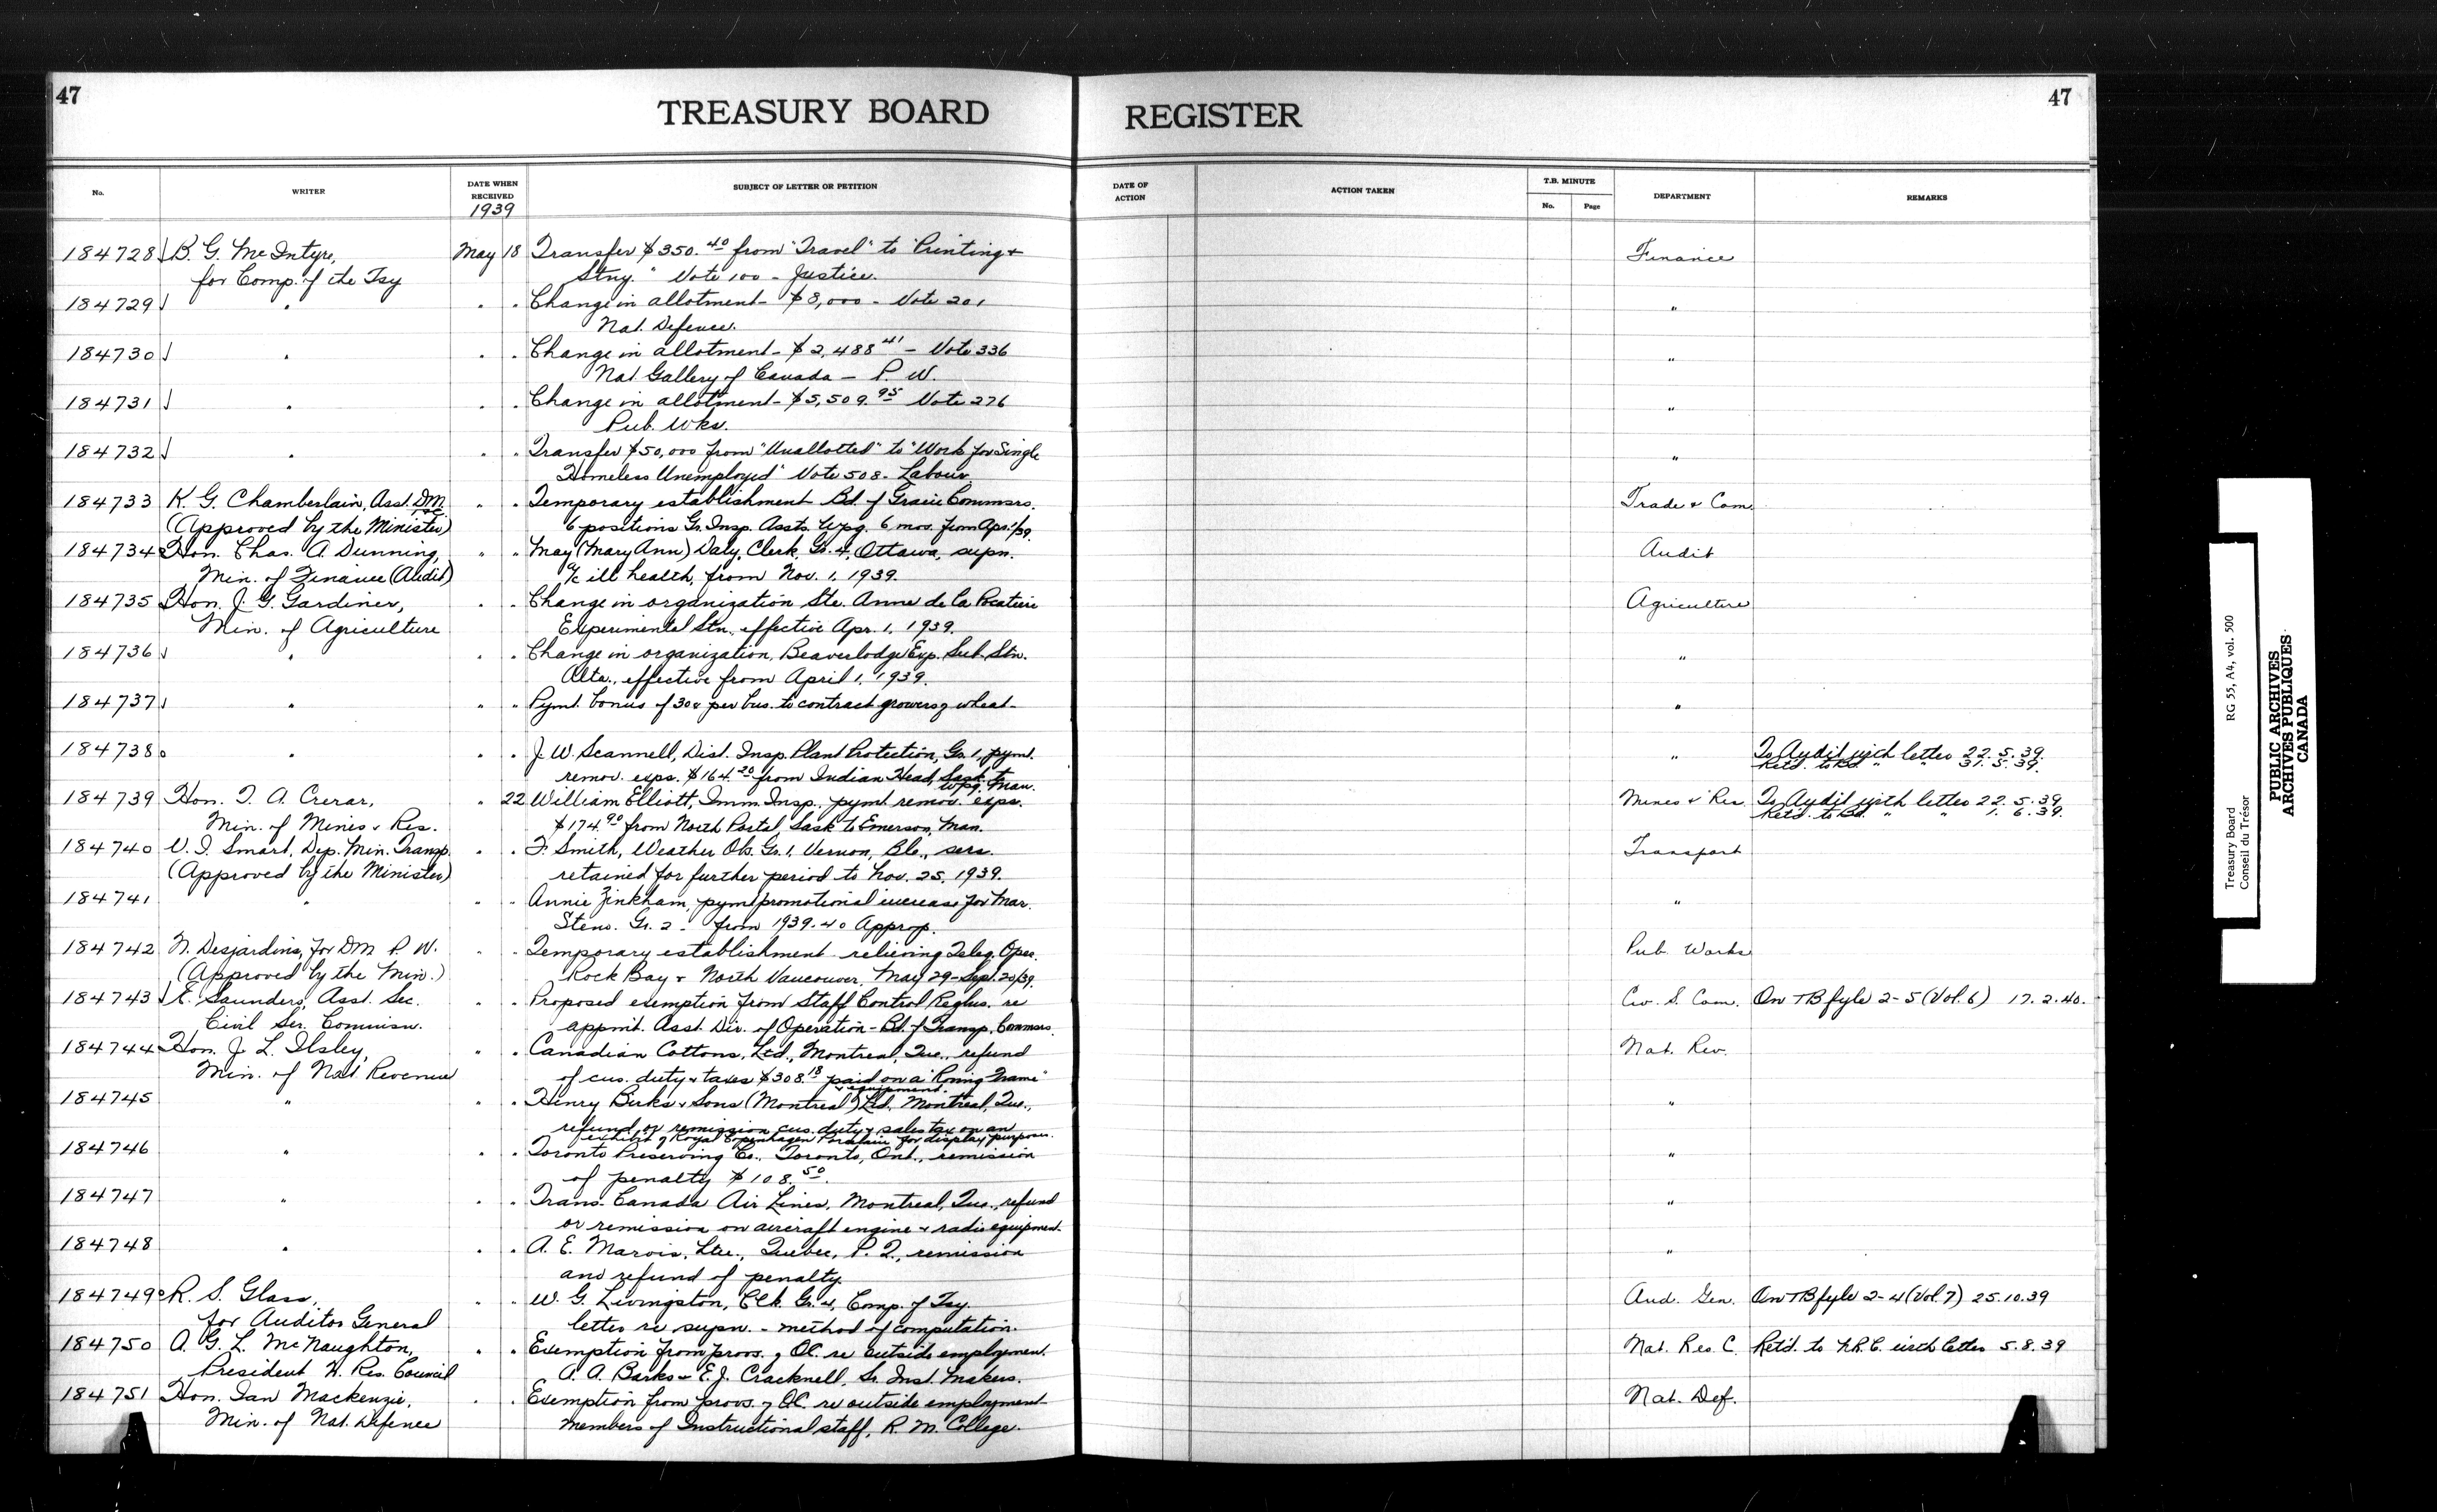 47
TREASURY BOARD REGISTER
47
No. WRITER DATE WHEN RECEIVED SUBJECT OF LETTER OR PETITION DATE OF ACTION ACTION TAKEN T.B. MINUTE No. Page DEPARTMENT REMARKS
1939
184728 B. G. McIntyre, May 18 Transfer $350.40 from "Travel" to "Printing & Finance
for Comp. of the Tsy Stny." Vote 100 - Justice.
184729 " " " Change in allotment - $8,000 - Vote 201 "
Nat. Defence.
184730 " " " Change in allotment - $2,488.41 - Vote 336 "
Nat. Gallery of Canada - P. W.
184731 " " " Change in allotment - $5,509.95 Vote 276 "
Pub. Wks.
184732 " " " Transfer $50,000 from "Unallotted" to "Work for Single "
Homeless Unemployed" Vote 508 - Labour
184733 K. G. Chamberlain, Asst. DM " " Temporary establishment Bd. of Grain Commsrs. Trade & Com.
T&C
(Approved by the Minister) 6 positions Gr. Insp. Assts. Wpg. 6 mos. from Apr. 1/39.
184734 Hon. Chas. A. Dunning, " " May (Mary Ann) Daly, Clerk, Gr. 4, Ottawa, supn. Audit
Min. of Finance (Audit) a/c ill health, from Nov. 1, 1939.
184735 Hon. J. G. Gardiner, " " Change in organization Ste. Anne de la Pocatiere Agriculture
Min. of Agriculture Experimental Stn., effective Apr. 1, 1939.
184736 " " " Change in organization, Beaverlodge Exp. Sub-Stn. "
Alta., effective from April 1, 1939.
184737 " " " Pymt. bonus of 30¢ per bus. to contract growers of wheat - "
184738 " " " J. W. Scannell, Dist. Insp. Plant Protection, Gr. 1, pymt. " To Audit with letter 22.5.39.
Retd. to Bd. " " 31.5.39.
remov. exps. $164.20 from Indian Head, Sask. to
Wpg. Man.
184739 Hon. T. A. Crerar, " 22 William Elliott, Imm. Insp., pymt remov. exps. Mines & Res. To Audit with letter 22.5.39
Retd. to Bd. " " 1.6.39.
Min. of Mines & Res. $174.90 from North Portal, Sask to Emerson, Man.
184740 V. I. Smart, Dep. Min. Transp. " " F. Smith, Weather Ob. Gr. 1, Vernon, B.C., sers. Transport
(Approved by the Minister) retained for further period to Nov. 25, 1939.
184741 " " " Annie Zinkham, pymt promotional increase for Mar. "
Steno. Gr. 2 - from 1939-40 Approp.
184742 N. Desjardins, for DM P. W. " " Temporary establishment relieving Teleg. Oper. Pub. Works
(Approved by the Min.) Rock Bay & North Vancouver, May 29 - Sept. 20/39.
184743 E. Saunders, Asst. Sec. " " Proposed exemption from Staff Control Reglns. re Civ. S. Com. On TB fyle 2-5 (Vol. 6) 17.2.40.
Civil Ser. Commisn. appmt. Asst. Dir. of Operation - Bd. of Transp. Commsrs
184744 Hon. J. L. Ilsley, " " Canadian Cottons, Ltd., Montreal, Que., refund Nat. Rev.
Min. of Nat. Revenue of cus. duty & taxes $308.18 paid on a "Roving Frame"
& equipment.
184745 " " " Henry Birks & Sons (Montreal) Ltd. Montreal, Que., "
refund or remission cus. duty & sales tax on an
exhibit of Royal Copenhagen Porcelain for display purposes.
184746 " " " Toronto Preserving Co., Toronto, Ont., remission "
of penalty $108.50.
184747 " " " Trans-Canada Air Lines, Montreal, Que., refund "
or remission on aircraft engine & radio equipment.
184748 " " " A. E. Marois, Ltee., Quebec, P. Q., remission "
and refund of penalty.
184749 R. S. Glass, " " W. G. Livingston, Clk. Gr. 4, Comp. of Tsy. Aud. Gen. On TB fyle 2-4 (Vol. 7) 25.10.39
for Auditor General letter re supn. - method of computation.
184750 A. G. L. McNaughton, " " Exemption from provs. of OC. re outside employment. Nat. Res. C. Ret'd. to N.R.C. with letter 5.8.39
President N. Res. Council A. A. Barks & E. J. Cracknell, Sr. Inst. Makers.
184751 Hon. Ian Mackenzie, " " Exemption from provs. of OC. re outside employment Nat. Def.
Min. of Nat. Defence members of Instructional staff, R. M. College.
Treasury Board RG 55, A4, vol. 500
Conseil du Trésor
PUBLIC ARCHIVES
ARCHIVES PUBLIQUES
CANADA